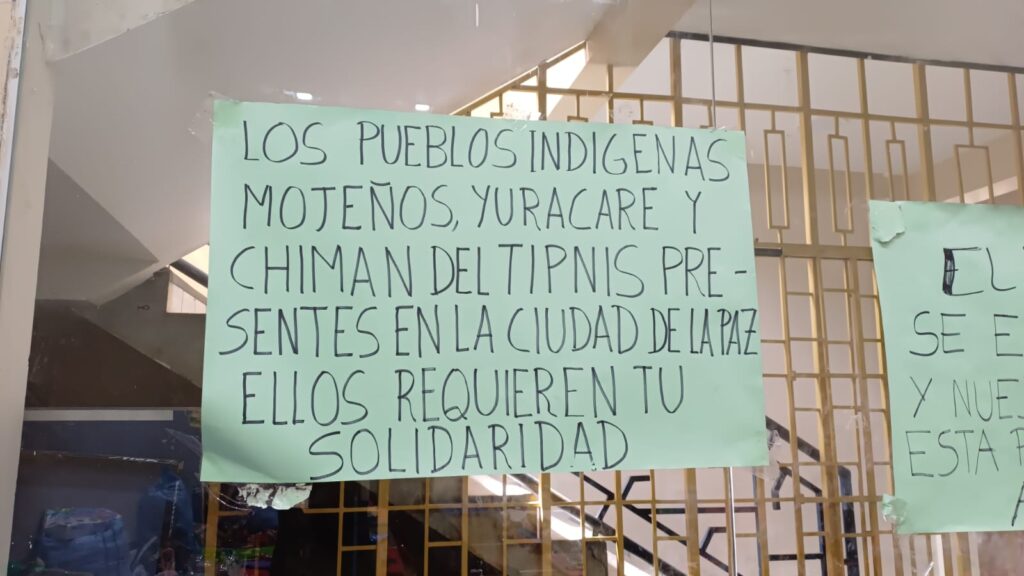 LOS PUEBLOS INDIGENAS
MOJEÑOS, YURACARE Y
CHIMAN DEL TIPNIS PRE-
SENTES EN LA CIUDAD DE LA PAZ
ELLOS REQUIEREN TU
SOLIDARIDAD
EL
SE
Y
ESTA